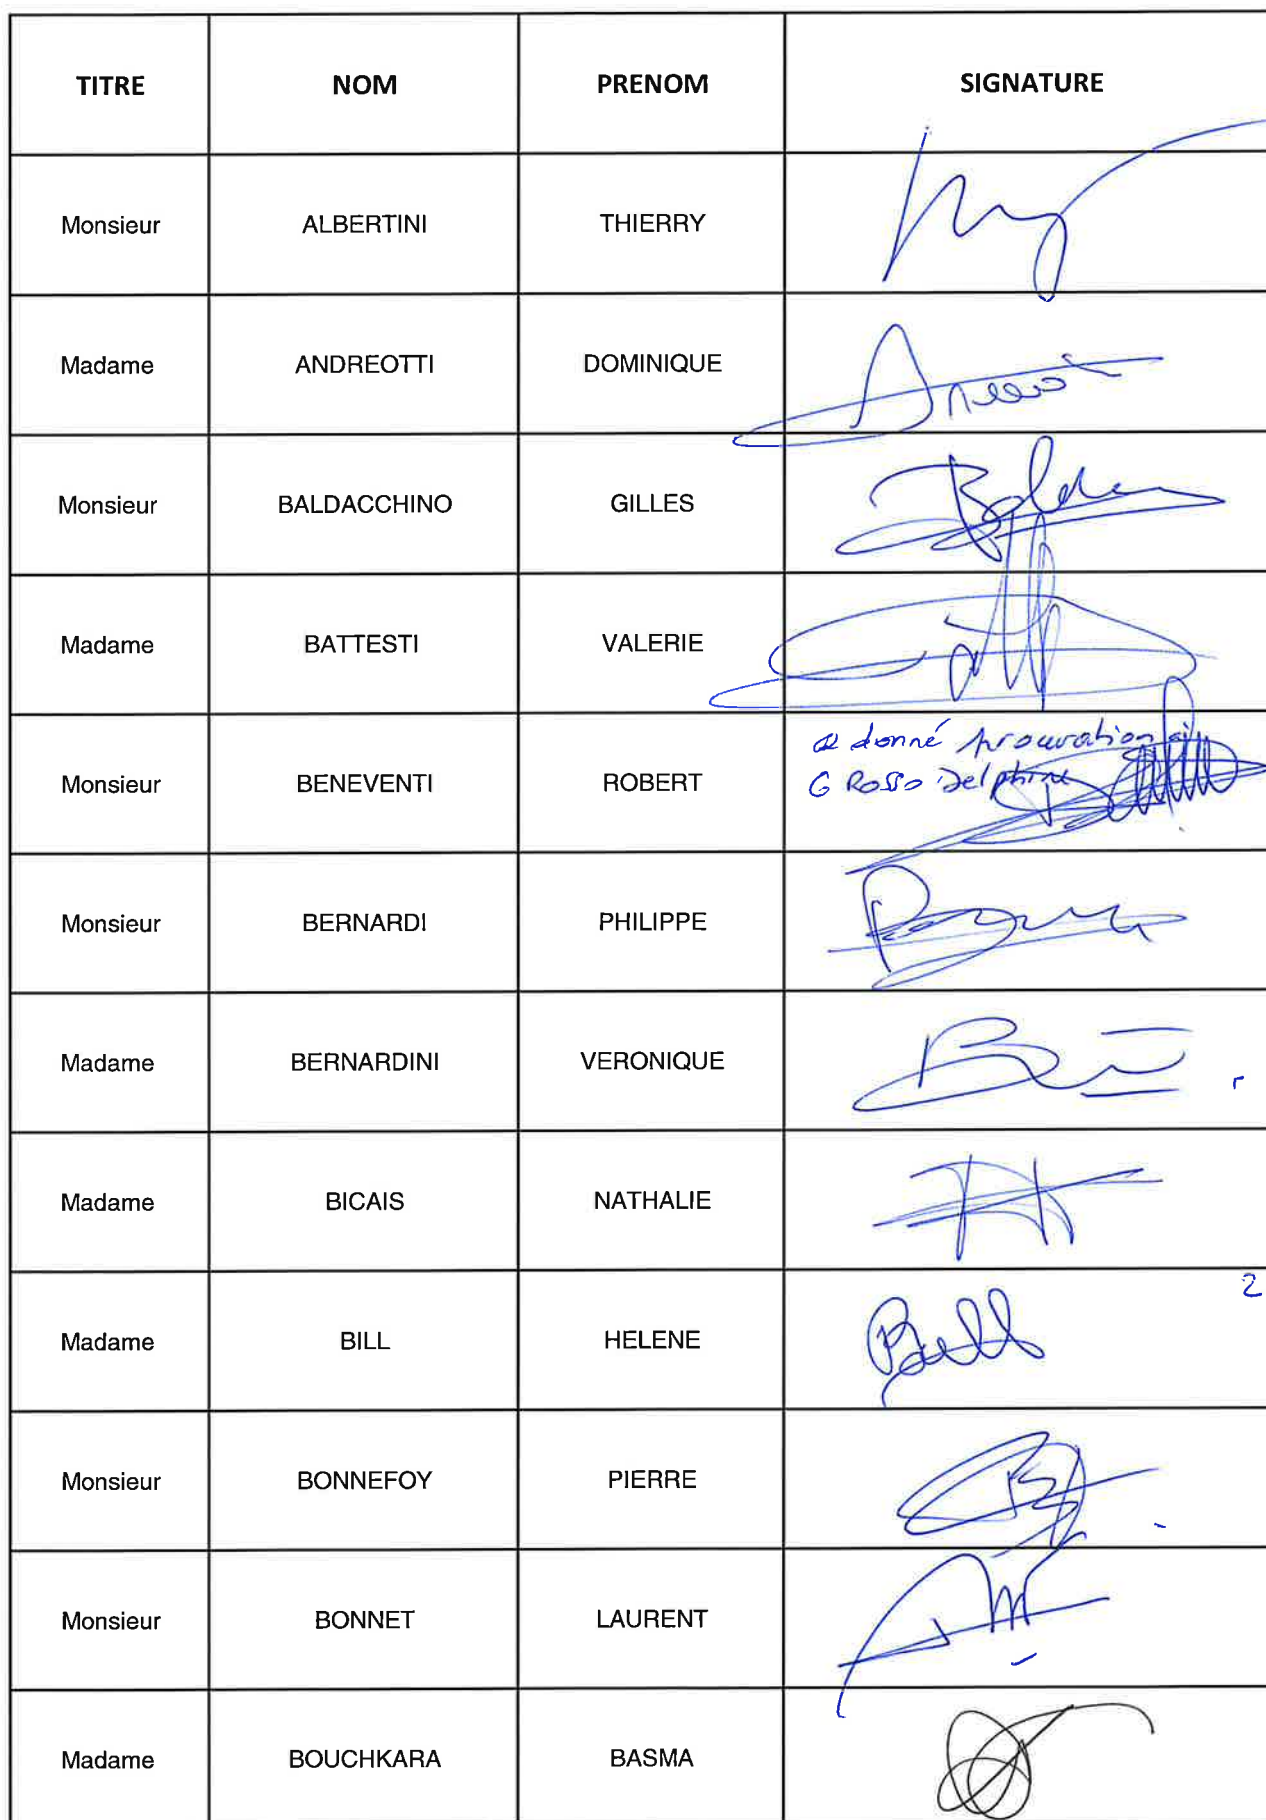 TITRE NOM PRENOM SIGNATURE
Monsieur ALBERTINI THIERRY
Madame ANDREOTTI DOMINIQUE
Monsieur BALDACCHINO GILLES
Madame BATTESTI VALERIE
a donné procuration à
Monsieur BENEVENTI ROBERT G ROSSO Delphine
Monsieur BERNARDI PHILIPPE
Madame BERNARDINI VERONIQUE
Madame BICAIS NATHALIE
2
Madame BILL HELENE
Monsieur BONNEFOY PIERRE
Monsieur BONNET LAURENT
Madame BOUCHKARA BASMA